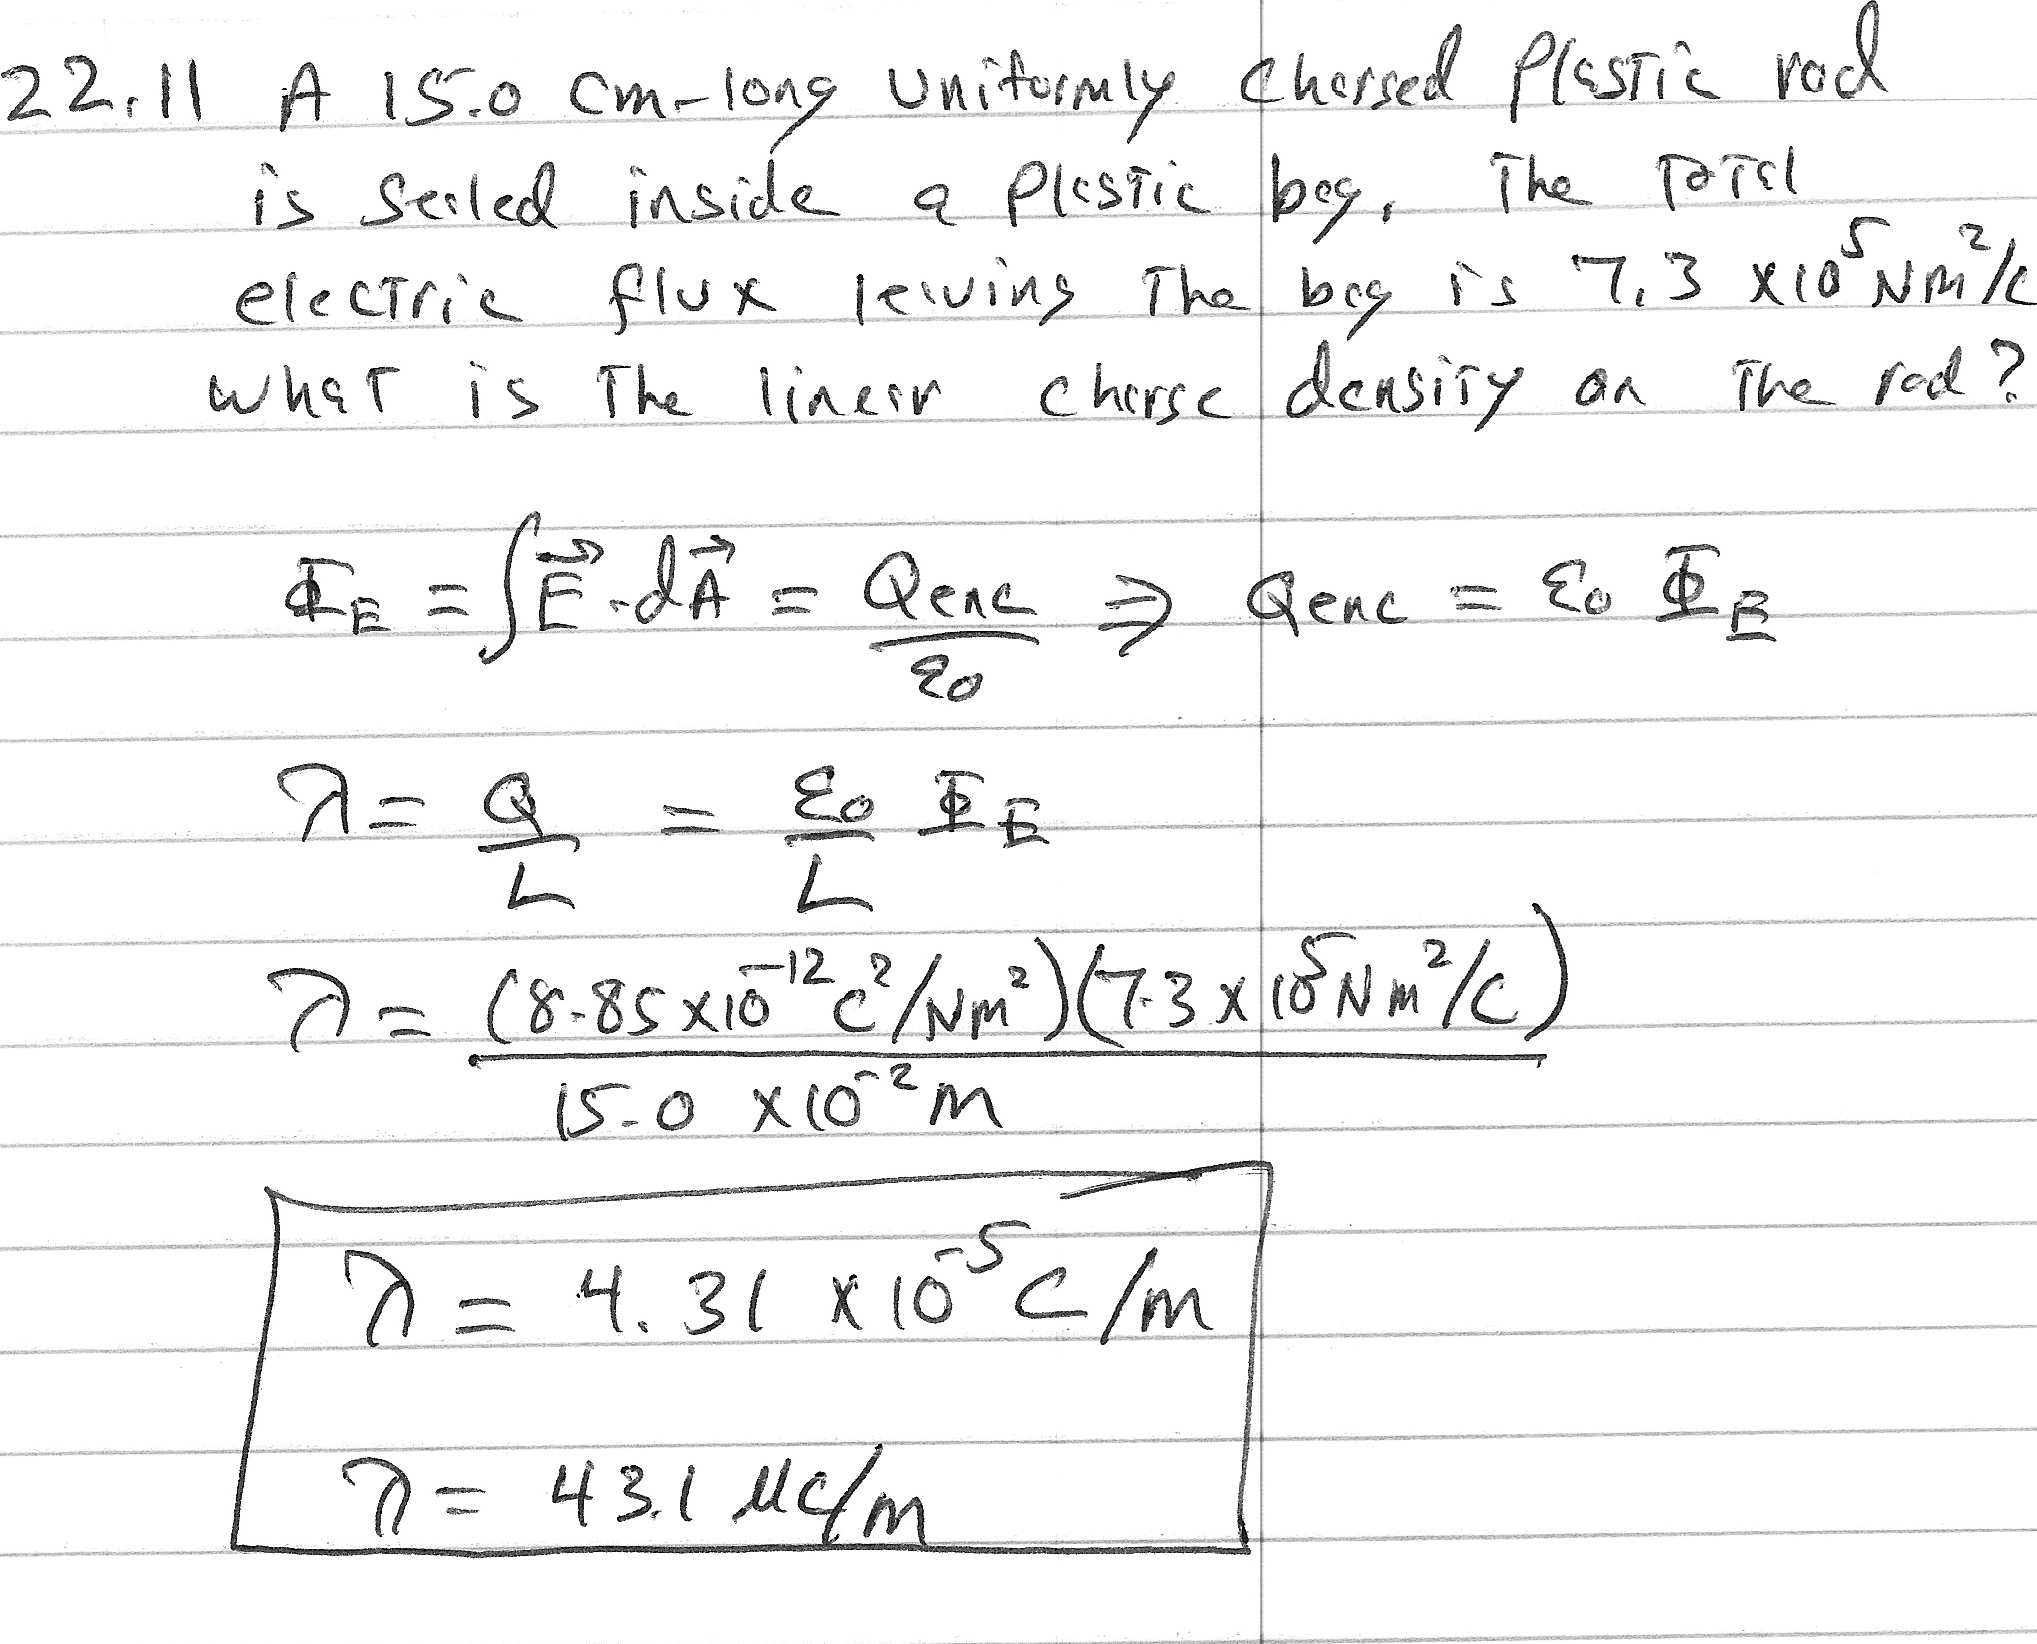 22.11 A 15.0 cm-long uniformly charged plastic rod
is sealed inside a plastic bag. The total
electric flux leaving the bag is 7.3 x10⁵ Nm²/C
what is the linear charge density on the rod?
Φ_E = ∫E⃗·dA⃗ = Qenc/ε₀ ⇒ Qenc = ε₀ Φ_E
λ = Q/L = ε₀/L Φ_E
λ = (8.85 x10⁻¹² C²/Nm²)(7.3 x 10⁵ Nm²/C)
15.0 x10⁻² m
λ = 4.31 x10⁻⁵ C/m
λ = 43.1 μC/m